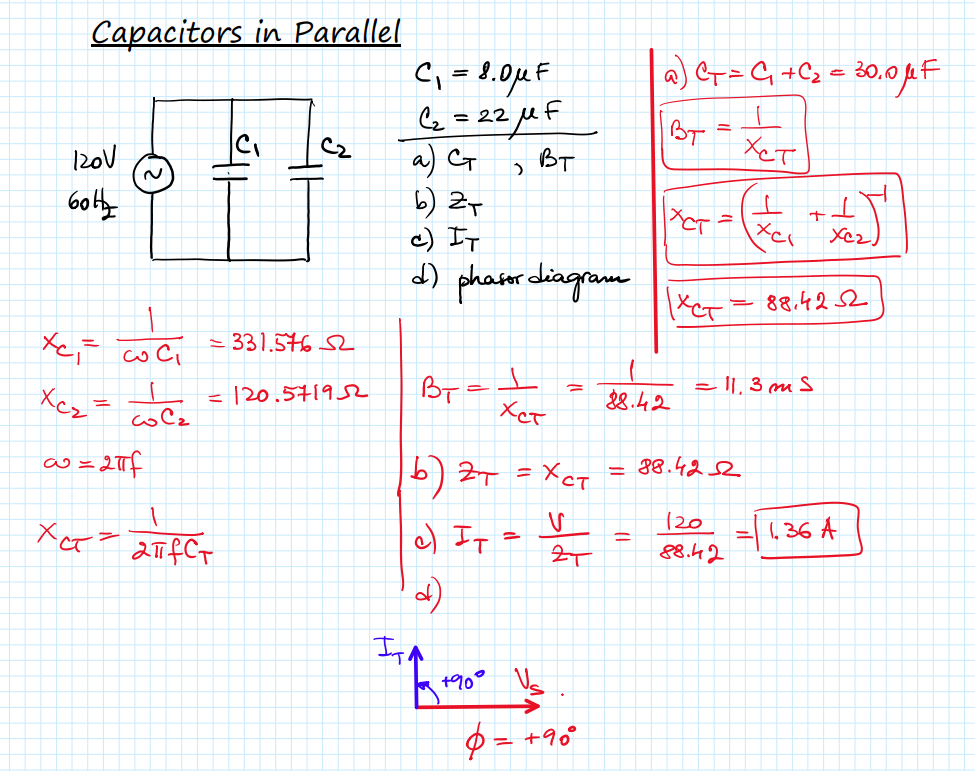 Capacitors in Parallel
120V
60Hz
C₁
C₂
C₁ = 8.0μF
C₂ = 22 μF
a) C_T , B_T
b) Z_T
c) I_T
d) phasor diagram
a) C_T = C₁ + C₂ = 30.0 μF
B_T = 1/X_CT
X_CT = (1/X_C1 + 1/X_C2)⁻¹
X_CT = 88.42 Ω
X_C1 = 1/ωC₁ = 331.576 Ω
X_C2 = 1/ωC₂ = 120.5719 Ω
ω = 2πf
X_CT = 1/2πfC_T
B_T = 1/X_CT = 1/88.42 = 11.3 mS
b) Z_T = X_CT = 88.42 Ω
c) I_T = V/Z_T = 120/88.42 = 1.36 A
d)
I_T
+90°
V_s
φ = +90°